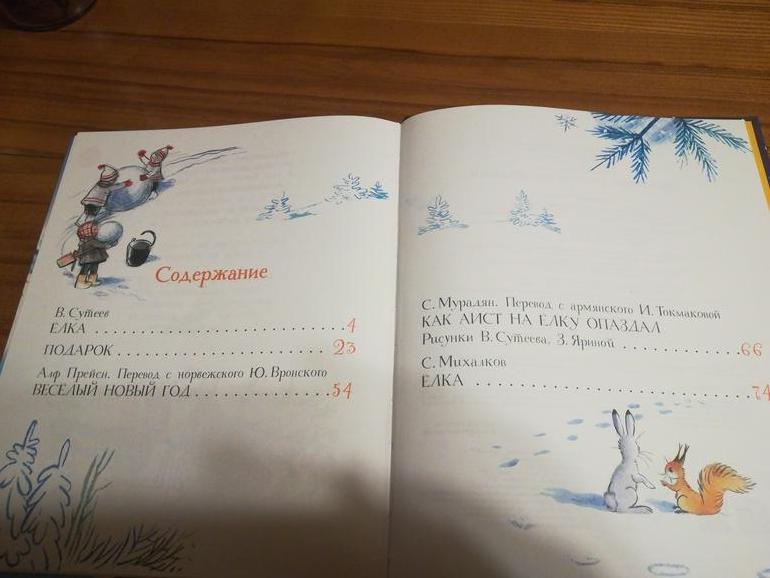 Содержание
В. Сутеев
ЕЛКА . . . . . . . . . . . . . . . . . . . . . . . . . . . . . . 4
ПОДАРОК . . . . . . . . . . . . . . . . . . . . . . . . . 23
Алф Прейсн. Перевод с норвежского Ю. Вронского
ВЕСЕЛЫЙ НОВЫЙ ГОД . . . . . . . . . . . . . . . . 54
С. Мурадян. Перевод с армянского И. Токмаковой
КАК АИСТ НА ЕЛКУ ОПАЗДАЛ
Рисунки В. Сутеева, З. Яриной . . . . . . . . . . . . . . . 66
С. Михалков
ЁЛКА . . . . . . . . . . . . . . . . . . . . . . . . . . . . . 74